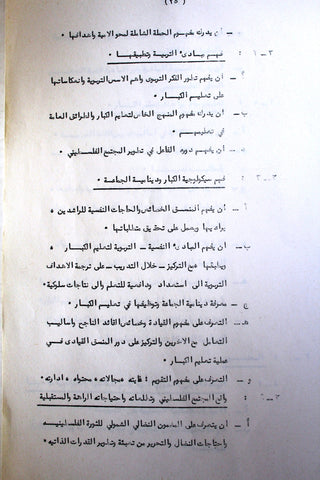 ( ٢٥ )
ـ ان يدرك مفهوم الخطة الشاملة لمحو الامية واهدافها •
٣ ـ ١ : فهم مبادئ التربية وتطبيقها •
أ ـ ان يفهم تطور الفكر التربوي واهم الاسس التربوية وانعكاساتها
على تعليم الكبار •
ب ـ ان يدرك مفهوم المنهج الخاص لتعليم الكبار والطرائق العامة
في تعليمهم •
ان يفهم دوره الفاعل في تطوير المجتمع الفلسطيني •
فهم سيكولوجية الكبار ودينامية الجماعة •
أ ـ ان يفهم المتسق الخصائص والحاجات النفسية للراشدين ،
يراعيها ويعمل على تحقيق متطلباتها •
ب ـ ان يفهم المبادئ النفسية ـ التربوية لتعليم الكبار ،
ويطبقها مع التركيز ـ خلال التدريب ـ على ترجمة الاهداف
التربوية الى استعداد ودافعية للتعلم والى نتاجات سلوكية •
ج ـ معرفة دينامية الجماعة وتوظيفها في تعليم الكبار •
التعرف على مفهوم القيادة وخصائص القائد الناجح واساليب
التعامل مع الاخرين والتركيز على دور المنسق القيادي في
عملية تعليم الكبار •
و ـ التعرف على مفهوم التقويم : غايته مجالاته ، محتواه ، ادارته •
واقع المجتمع الفلسطيني وتطلعاته واحتياجاته الراهنة والمستقبلية
أ ـ ان يتعرف على المضمون النضالي الشمولي للثورة الفلسطينية
واحتياجات النضال والتحرير من تعبئة وتطوير القدرات الذاتية •